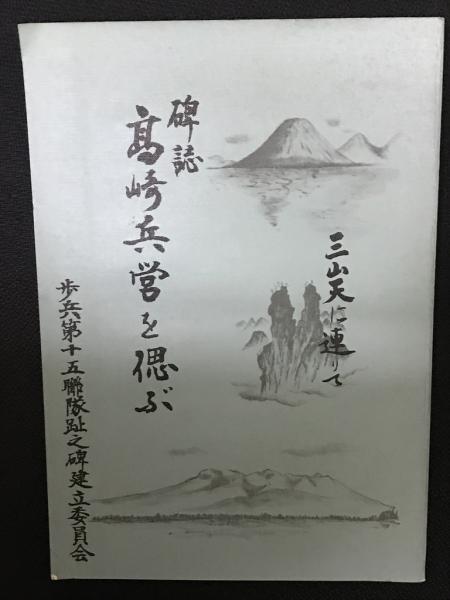 三山天に連りて
碑誌
高崎兵営を偲ぶ
歩兵第十五聯隊趾之碑建立委員会